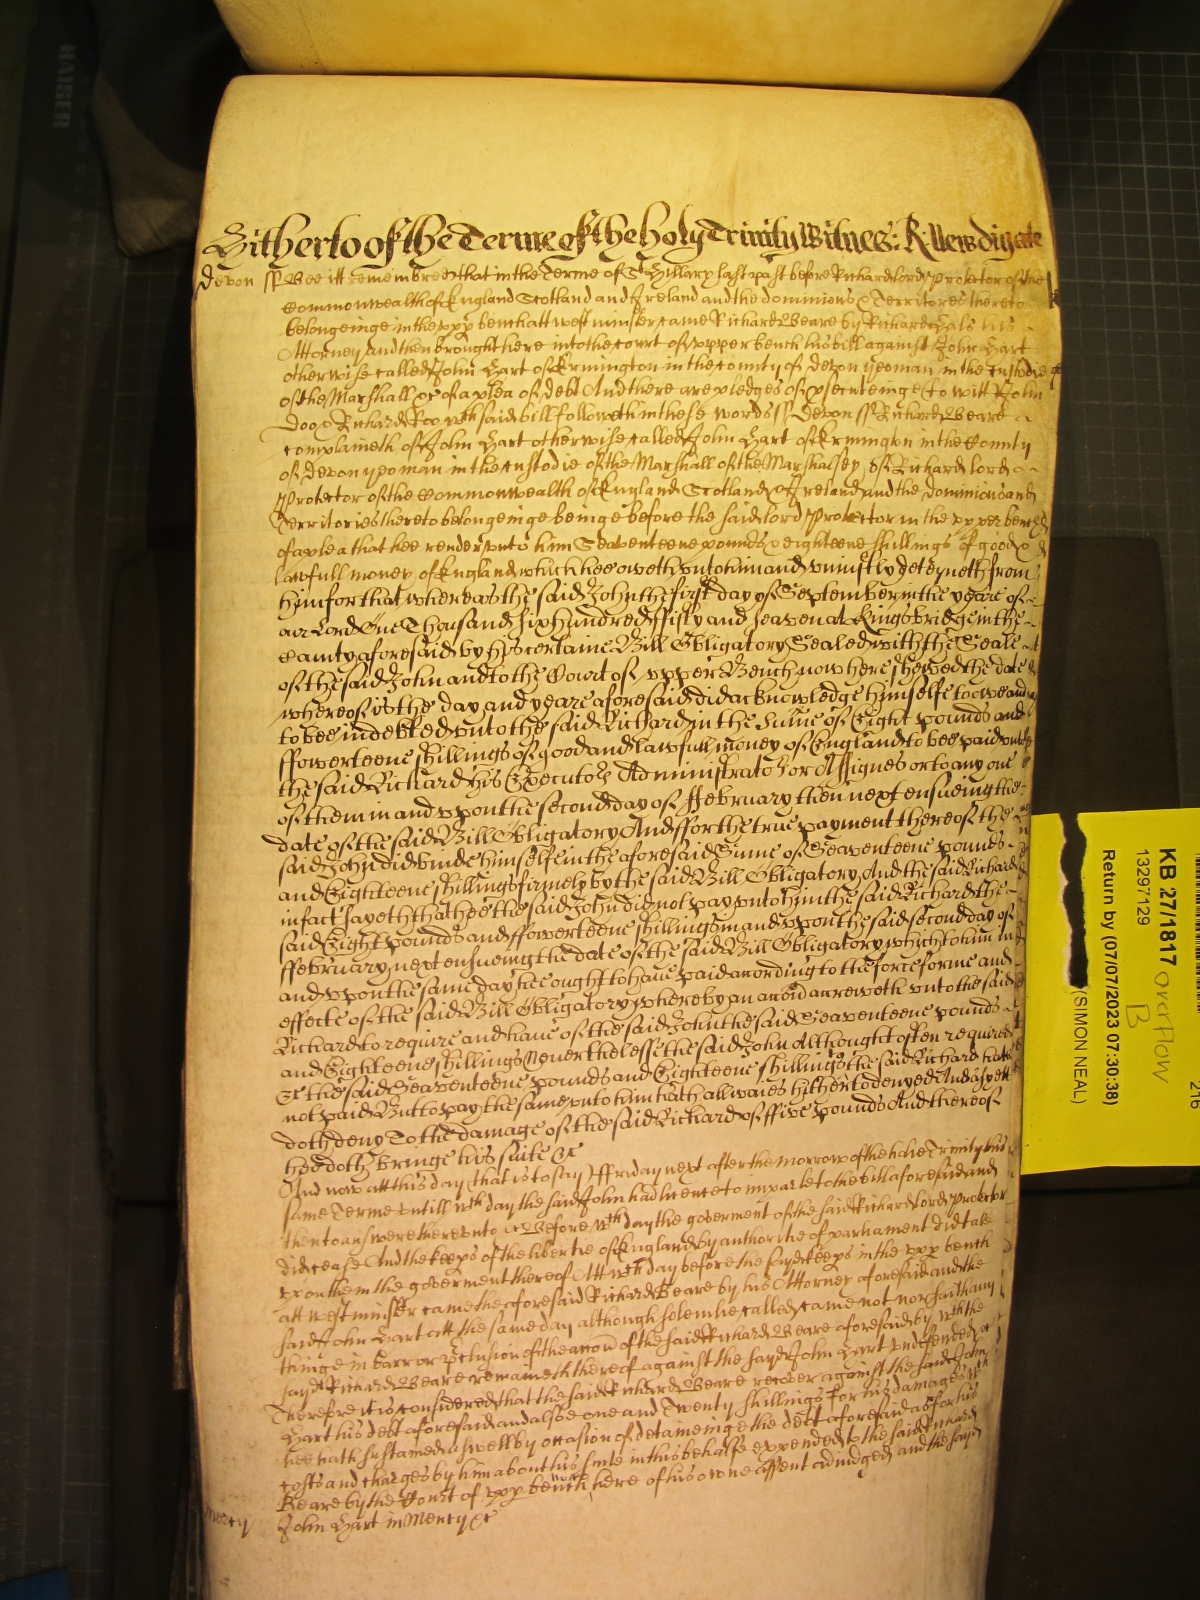 Hitherto of the Terme of the holy Trinity Witnes: R: Newdigate
Devon ss Bee itt remembred that in the Terme of St Hillary last past before Richard lord Protector of the
Commonwealth of England Scotland and Ireland and the dominions & Territores thereto
belongeinge in the upp bench att westminster came Richard Beare by Richard Hals his
Attorney And then brought here into the court of upper bench his bill against John Hart
otherwise called John Hart of Ermington in the county of devon yeoman in the custodie
of the Marshall &c of a plea of debt And there are pledges of prsecuteinge (to witt) John
Doo & Richard Roo wch said bill followeth in these words ss Devon ss Richard Beare
complaineth of John Hart otherwise called John Hart of Ermington in the County
of Devon yeoman in the custodie of the Marshall of the Marshalsey of Richard lord
Protector of the Commonwealth of England Scotland & Ireland and the dominions and
Territories thereto belongeinge beinge before the said lord Protector in the upper bench
of a plea that hee render unto him Seaventeene pounds & eighteene shillings of good &
lawfull money of England which hee oweth unto him and uniustly deteyneth from
him for that whereas the said John the first day of September in the yeare of
our Lord One Thousand Six hundred ffifty and Seaven at Kingsbridge in the
County aforesaid by his certaine Bill Obligatory Sealed with the Seale
of the said John and to the Court of upper Bench now here shewed the date
whereof is the day and yeare aforesaid did acknowledge himselfe to owe and
to bee indebted unto the said Richard in the Sume of Eight pounds and
ffowerteene shillings of good and lawfull money of England to bee paid unto
the said Richard his Executors Administrators or Assignes or to any one
of them in and upon the second day of ffebruary then next ensueing the
date of the said Bill Obligatory And ffor the true payment thereof the
said John did binde himselfe in the aforesaid Sume of Seaventeene pounds
and Eighteene shillings firmely by the said Bill Obligatory And the said Richard
in fact sayeth that hee the said John did not pay unto him the said Richard the
said Eight pounds and ffowerteene shillings in and upon the said second day of
ffebruary next ensueing the date of the said Bill Obligatory which to him in
and upon the same day hee ought to have paid according to the force forme and
effecte of the said Bill Obligatory whereby an accon accreweth unto the said
Richard to require and have of the said John the said Seaventeene pounds
and Eighteene shillings Neverthelesse the said John Althought often required
&c the said Seaventeene pounds and Eighteene shillings the said Richard hath
not paid But to pay the same unto him hath allwaies hitherto denyed And as yett
doth deny To the damage of the said Richard of ffive pounds And thereof
hee doth bringe his suite &c
And now att this day that is to say ffriday next after the morrow of the holie Trinity this
same Terme untill wch day the said John had licence to imparle to the bill aforesaid and
then to answere thereunto &c Before wch day the goverment of the said Richard lord Protector
did cease And the keeps of the libertie of England by authoritie of parliament did take
upon them the goverment thereof Att wch day before the sayd keeps in the upp bench
att westminster came the aforesaid Richard Beare by his Attorney aforesaid and the
said John Hart att the same day although solemlie called came not nor saith any
thinge in barr or preclusion of the accon of the said Richard Beare aforesaid by wch the
sayd Richard Beare remaineth thereof against the sayd John Hart undefended &c
Therefore it is considered that the said Richard Beare recover against the said John
Hart his debt aforesaid and alsoe one and Twenty shillings for his damages wch
hee hath sustained aswell by occasion of detaineinge the debt aforesaid as for his
costs and charges by him about his suite in this behalfe expended to the said Richard
Beare by the Court of upp bench here of his owne assent adiudged and the sayd
John Hart in Mercy &c
mercy
KB 27/1817 overflow
B
13297129
Return by (07/07/2023 07:30:38)
(SIMON NEAL)
216
HAISER